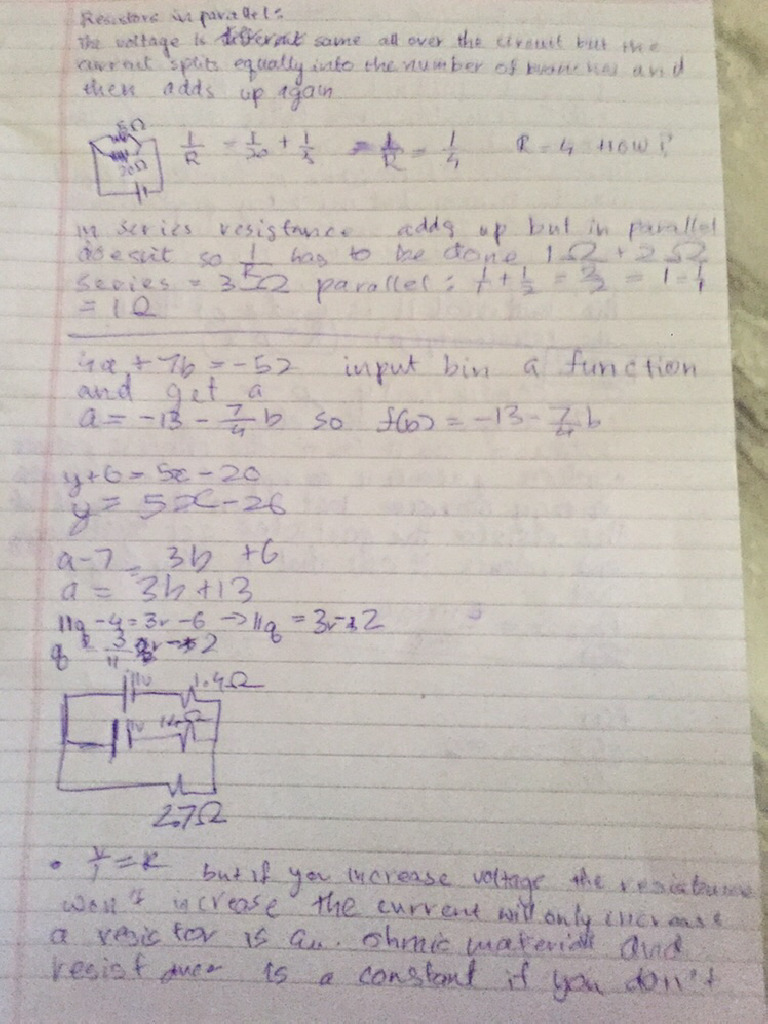 Resistors in parallel:
the voltage is same all over the circuit but the
current splits equally into the number of branches and
then adds up again
5Ω
20Ω
1/R = 1/20 + 1/5 = 1/R = 1/4 R = 4 HOW?
in series resistance adds up but in parallel
doesnt so 1/R has to be done 1Ω + 2Ω
series = 3Ω parallel: 1/1 + 1/2 = = 1
= 1Ω
4a + 7b = -52 input b in a function
and get a
a = -13 - 7/4 b so f(b) = -13 - 7/4 b
y+6 = 5x - 20
y = 5x - 26
a-7 = 3b +6
a = 3b + 13
11q - 4 = 3r - 6 → 11q = 3r - 2
q = 3/11 - 2
11v 1.4Ω
11v
2.7Ω
• V/I = R but if you increase voltage the resistance
won't increase the current will only increase
a resistor is an ohmic material and
resistance is a constant if you don't